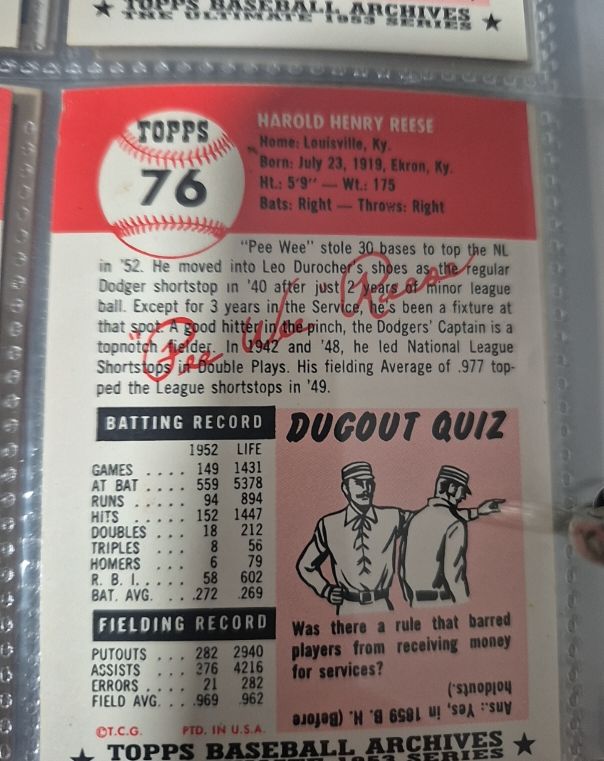 TOPPS BASEBALL ARCHIVES
THE ULTIMATE 1953 SERIES
TOPPS
76
HAROLD HENRY REESE
Home: Louisville, Ky.
Born: July 23, 1919, Ekron, Ky.
Ht.: 5'9" — Wt.: 175
Bats: Right — Throws: Right
"Pee Wee" stole 30 bases to top the NL
in '52. He moved into Leo Durocher's shoes as the regular
Dodger shortstop in '40 after just 2 years of minor league
ball. Except for 3 years in the Service, he's been a fixture at
that spot. A good hitter in the pinch, the Dodgers' Captain is a
topnotch fielder. In 1942 and '48, he led National League
Shortstops in Double Plays. His fielding Average of .977 top-
ped the League shortstops in '49.
"Pee Wee" Reese
BATTING RECORD
1952 LIFE
GAMES .... 149 1431
AT BAT .... 559 5378
RUNS .... 94 894
HITS ..... 152 1447
DOUBLES ... 18 212
TRIPLES ... 8 56
HOMERS ... 6 79
R. B. I. .... 58 602
BAT. AVG. ... .272 .269
FIELDING RECORD
PUTOUTS ... 282 2940
ASSISTS ... 376 4216
ERRORS .... 21 282
FIELD AVG. ... .969 .962
©T.C.G. PTD. IN U.S.A.
DUGOUT QUIZ
Was there a rule that barred
players from receiving money
for services?
Ans.: Yes, in 1859 B. H. (Before)
holdouts.)
TOPPS BASEBALL ARCHIVES